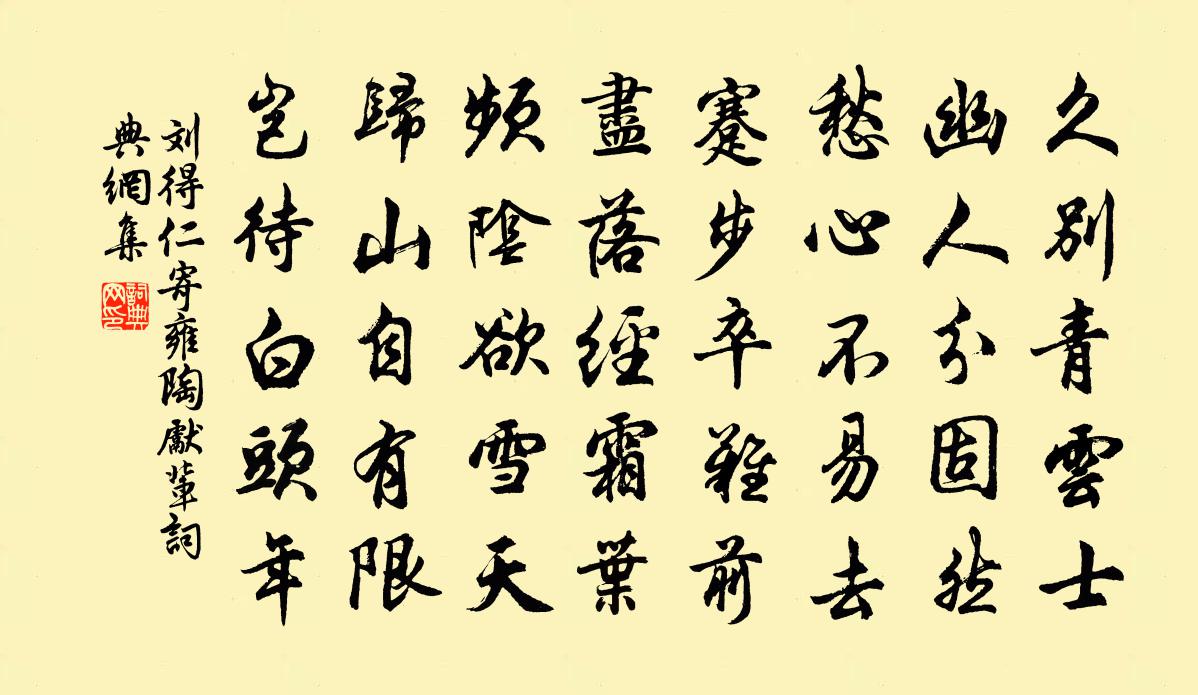 久别青雲士
幽人分固然
愁心不易去
蹇步卒難前
盡落經霜葉
頻陰欲雪天
歸山自有限
豈待白頭年
刘得仁寄雍陶獻軰詞
典網集
詞典
网印